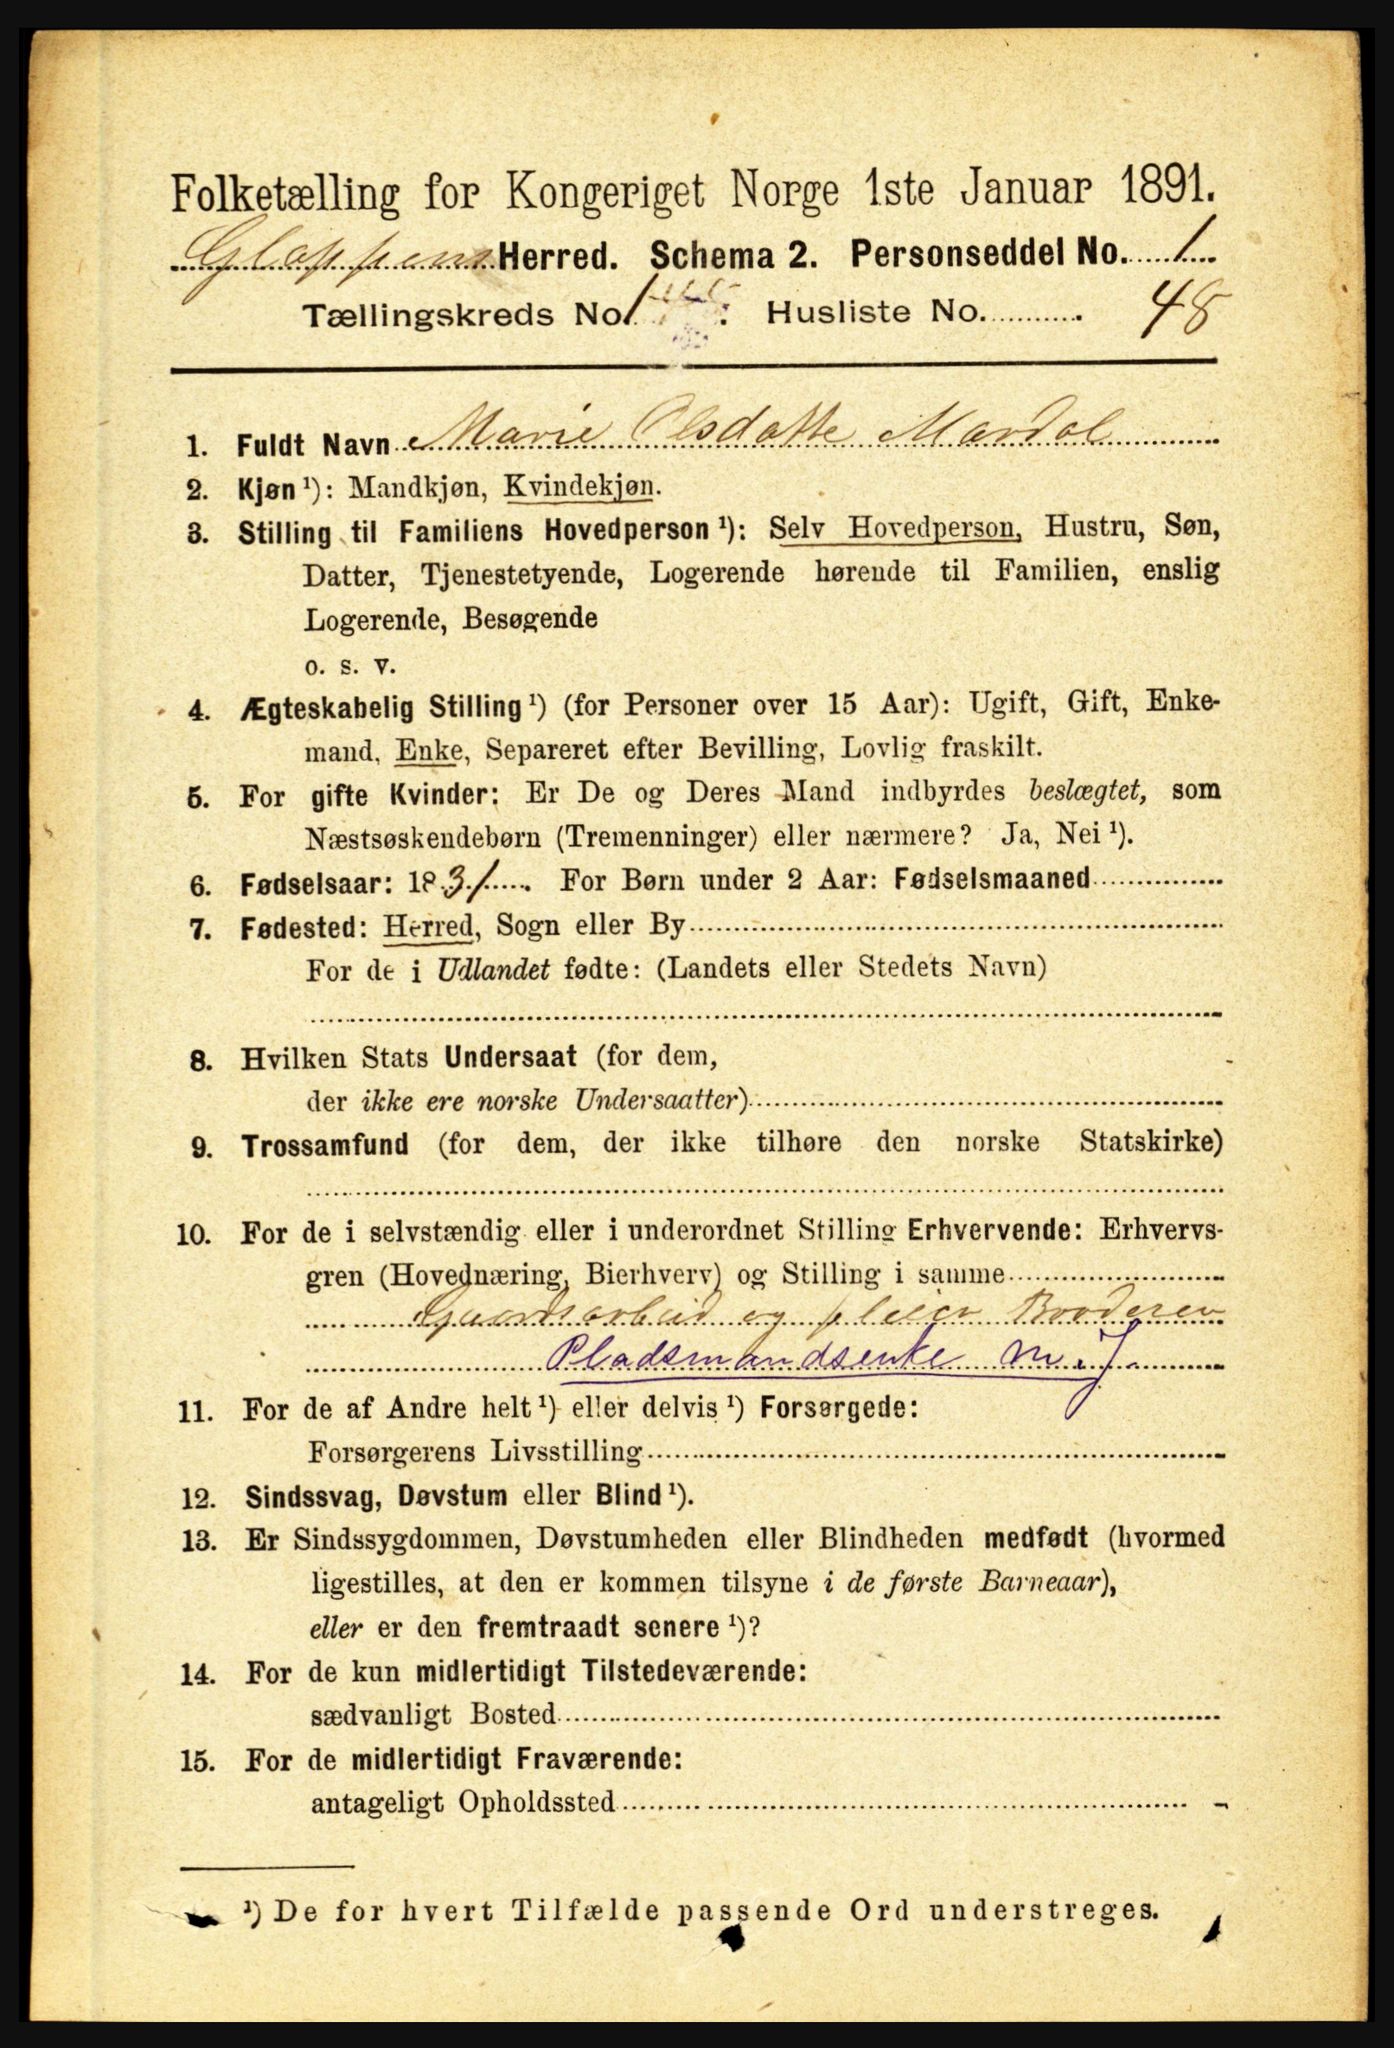 Folketælling for Kongeriget Norge 1ste Januar 1891.
Gloppens Herred. Schema 2. Personseddel No. 1
Tællingskreds No. 1. Husliste No. 48
1. Fuldt Navn Marie Olsdatte Mardal
2. Kjøn ¹): Mandkjøn, Kvindekjøn.
3. Stilling til Familiens Hovedperson ¹): Selv Hovedperson, Hustru, Søn,
Datter, Tjenestetyende, Logerende hørende til Familien, enslig
Logerende, Besøgende
o. s. v.
4. Ægteskabelig Stilling ¹) (for Personer over 15 Aar): Ugift, Gift, Enke-
mand, Enke, Separeret efter Bevilling, Lovlig fraskilt.
5. For gifte Kvinder: Er De og Deres Mand indbyrdes beslægtet, som
Næstsøskendebørn (Tremenninger) eller nærmere? Ja, Nei ¹).
6. Fødselsaar: 1831. For Børn under 2 Aar: Fødselsmaaned
7. Fødested: Herred, Sogn eller By
For de i Udlandet fødte: (Landets eller Stedets Navn)
8. Hvilken Stats Undersaat (for dem,
der ikke ere norske Undersaatter)
9. Trossamfund (for dem, der ikke tilhøre den norske Statskirke)
10. For de i selvstændig eller i underordnet Stilling Erhvervende: Erhvervs-
gren (Hovednæring, Bierhverv) og Stilling i samme
Gaardsarbeid og
Pladsmandsenke m. J.
11. For de af Andre helt ¹) eller delvis ¹) Forsørgede:
Forsørgerens Livsstilling
12. Sindssvag, Døvstum eller Blind ¹).
13. Er Sindssygdommen, Døvstumheden eller Blindheden medfødt (hvormed
ligestilles, at den er kommen tilsyne i de første Barneaar),
eller er den fremtraadt senere ¹)?
14. For de kun midlertidigt Tilstedeværende:
sædvanligt Bosted
15. For de midlertidigt Fraværende:
antageligt Opholdssted
¹) De for hvert Tilfælde passende Ord understreges.